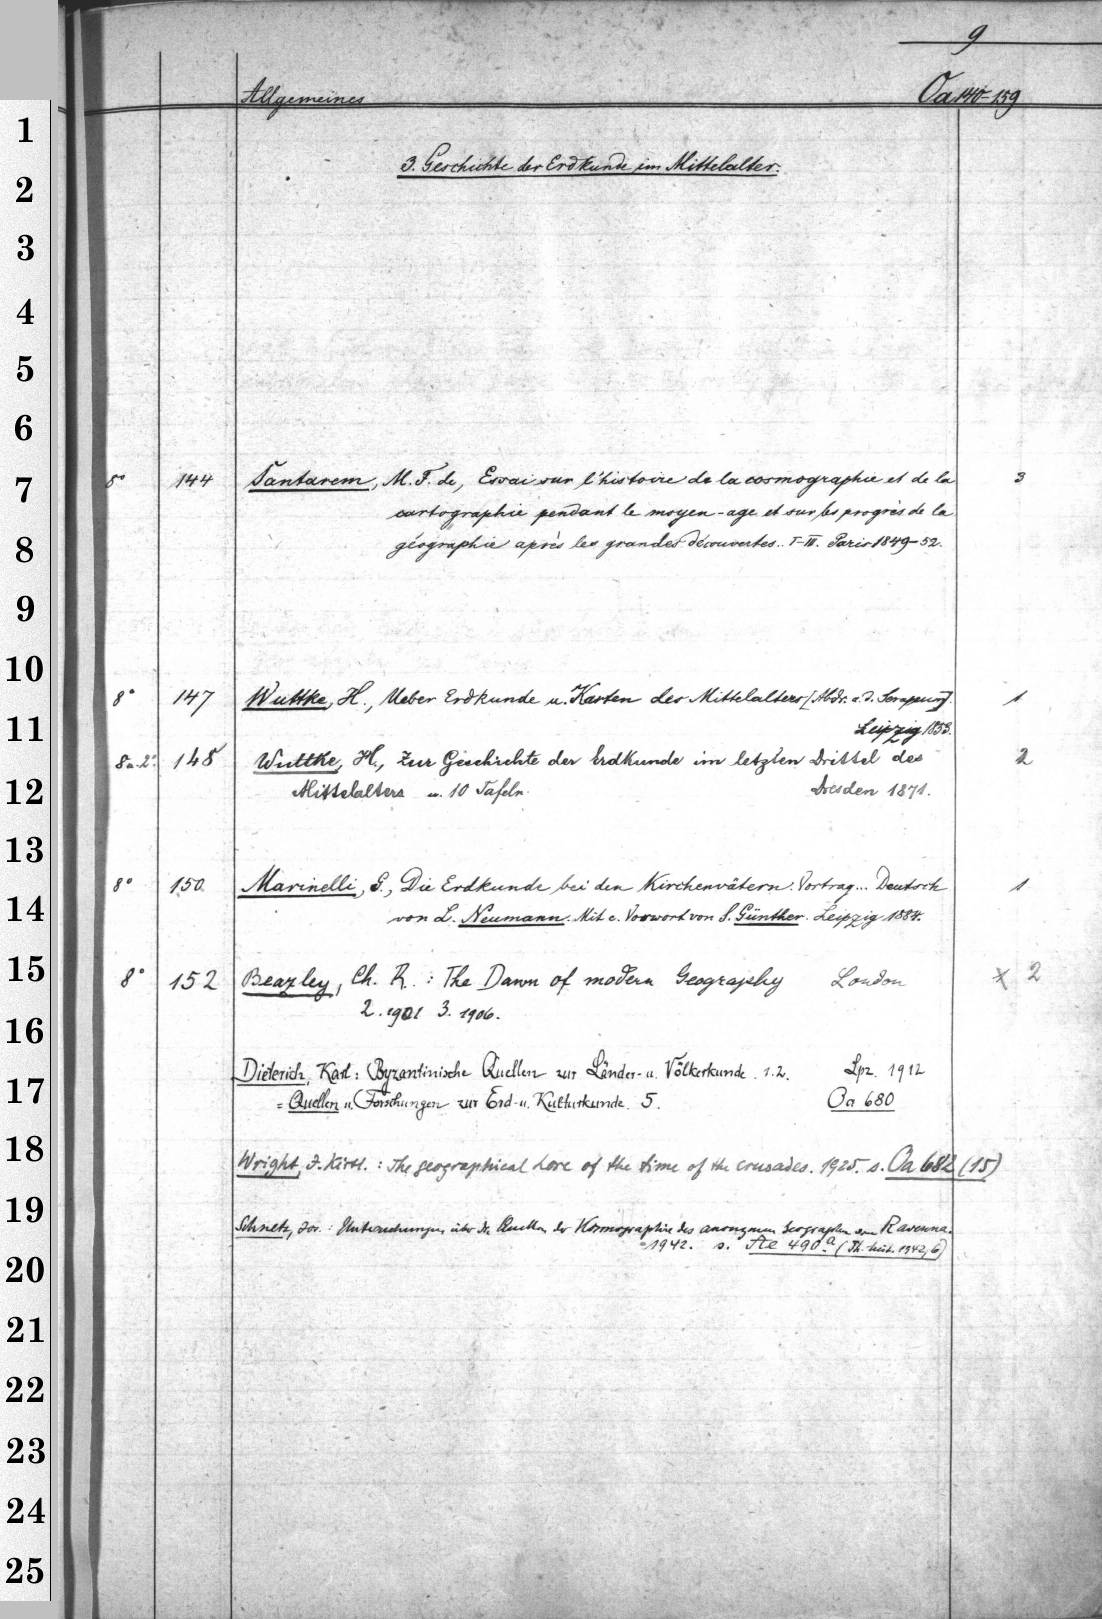 9
Allgemeines Oa 140-159
1
3. Geschichte der Erdkunde im Mittelalter.
2
3
4
5
6
7 8° 144 Santarem, M. F. de, Essai sur l'histoire de la cosmographie et de la 3
cartographie pendant le moyen-age et sur les progrès de la
8 géographie après les grandes découvertes.. I-III. Paris 1849-52.
9
10
8° 147 Wuttke, H., Ueber Erdkunde u. Karten des Mittelalters [Abdr. a. d. Serapeum]. 1
11 Leipzig 1853.
8° u. 2°. 148 Wuttke, H., Zur Geschichte der Erdkunde im letzten Drittel des 2
12 Mittelalters u. 10 Tafeln. Dresden 1871.
13
8° 150. Marinelli, G., Die Erdkunde bei den Kirchenvätern. Vortrag... Deutsch 1
14 von L. Neumann. Mit e. Vorwort von S. Günther. Leipzig 1884.
15 8° 152 Beazley, Ch. R. : The Dawn of modern Geography London x 2
2. 1901 3. 1906.
16
Dieterich, Karl: Byzantinische Quellen zur Länder- u. Völkerkunde. 1.2. Lpz. 1912
17 = Quellen u. Forschungen zur Erd- u. Kulturkunde. 5. Oa 680
18 Wright, J. Kirtl. : The geographical Lore of the time of the crusades. 1925. s. Oa 682 (15)
19 Schnetz, Jos. : Untersuchungen über die Quellen der Kosmographie des anonymen Geographen von Ravenna.
=1942. s. Ae 490a (Ph.-hist. 1942, 6)
20
21
22
23
24
25